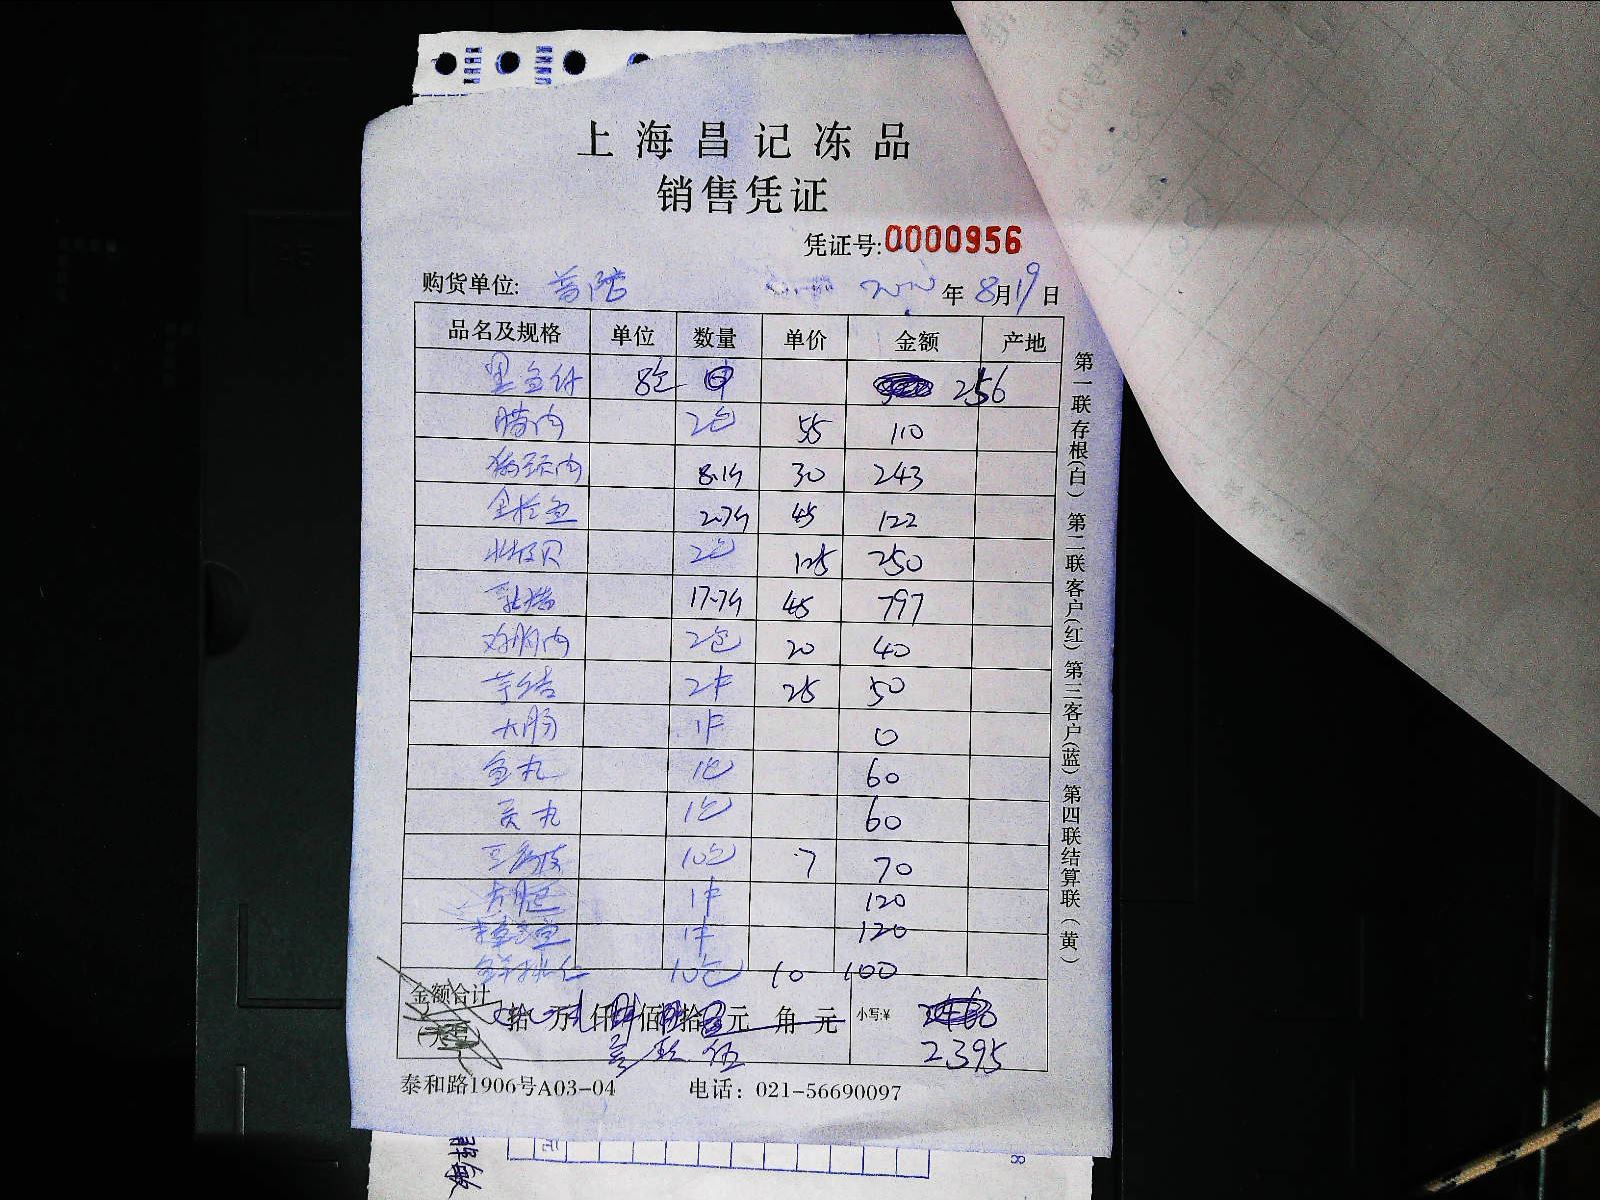 上海昌记冻品
销售凭证
凭证号:0000956
购货单位: 年 8月19日
品名及规格 单位 数量 单价 金额 产地
黑鱼片 8包 256
腊肉 2包 55 110
猪颈肉 8.1斤 30 243
2.7斤 45 122
北极贝 2包 125 250
乳猪 17.7斤 45 797
鸡胸肉 2包 20 40
芋结 2件 25 50
大肠 1件 0
鱼丸 1包 60
贡丸 1包 60
豆腐皮 10包 7 70
1件 120
1件 120
10包 10 100
金额合计
(大写) 拾 万 仟 佰 拾 元 角 元 小写:¥
叁 玖 伍 2395
泰和路1906号A03-04 电话：021-56690097
第一联存根(白) 第二联客户(红) 第三客户(蓝) 第四联结算联(黄)